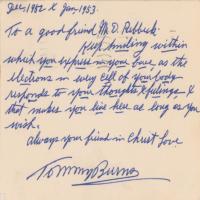 Dec, 1952 & Jan, 1953.
To a good friend, M. D. Rebbeck
Keep smiling within
which you express in your Love as the
electrons in every cell of your body
responds to your thoughts & feelings &
that makes you live here as long as you
wish.
always your friend in Christ Love
Tommy Burns